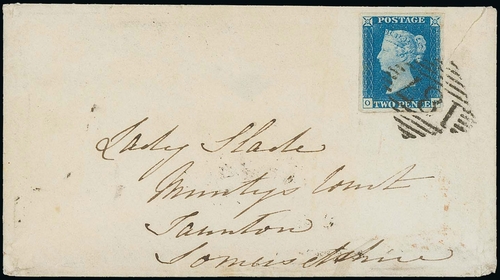 POSTAGE
TWO PENCE
Lady Slade
Muntys Court
Taunton
Somersetshire